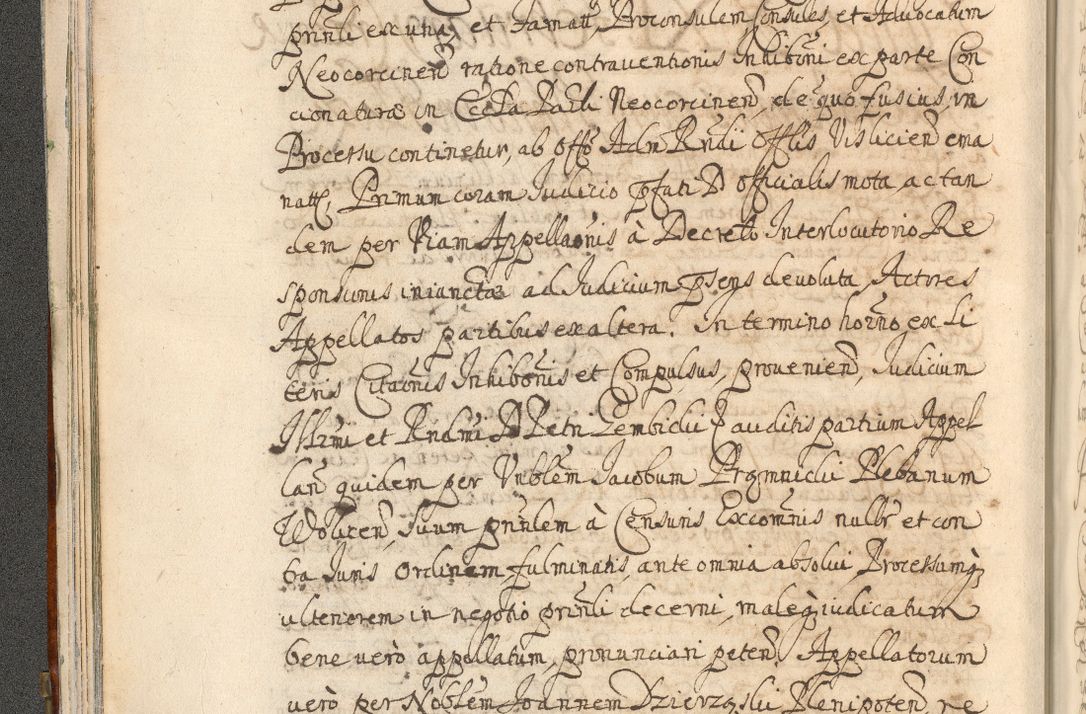 prinli ex una, et Famatũ, Proconsulem Consules, et Advocatum
Neocorcineñ ratione contraventionis Inhibõni ex parte Con
cionaturæ in Ecclã Parli Neocorcineñ, de quo fusius in
Processu continetur, ab offõ Adm Rndi Offlis Vislicień ema
natt, Primum coram Judicio pfati D Officialis mota, ac tan
dem per Viam Appellaõnis à Decreto Interlocutorio Re
sponsionis iniunctæ ad Judicium psens devoluta, Actores
Appellatos partibus ex altera. In termino horno ex Li
teris Citaõnis Inhibõnis et Compulsus, provenień, Judicium
Illrmi et Rndmi D Petri Gembicki auditis partium Appel
lañ quidem per Vnblem Jacobum Plebanum
Woliceñ, suum prinlem à Censuris Excomñis nullr et con
tra Juris Ordinem fulminatis, ante omnia absolvi, Processumq
ulteriorem in negotio prinli decerni, maleq iudicatum
bene verò appellatum, pronunciari peteñ. Appellatorum
verò per Noblem Joannem Dzierzgski Plenipoteñ, re